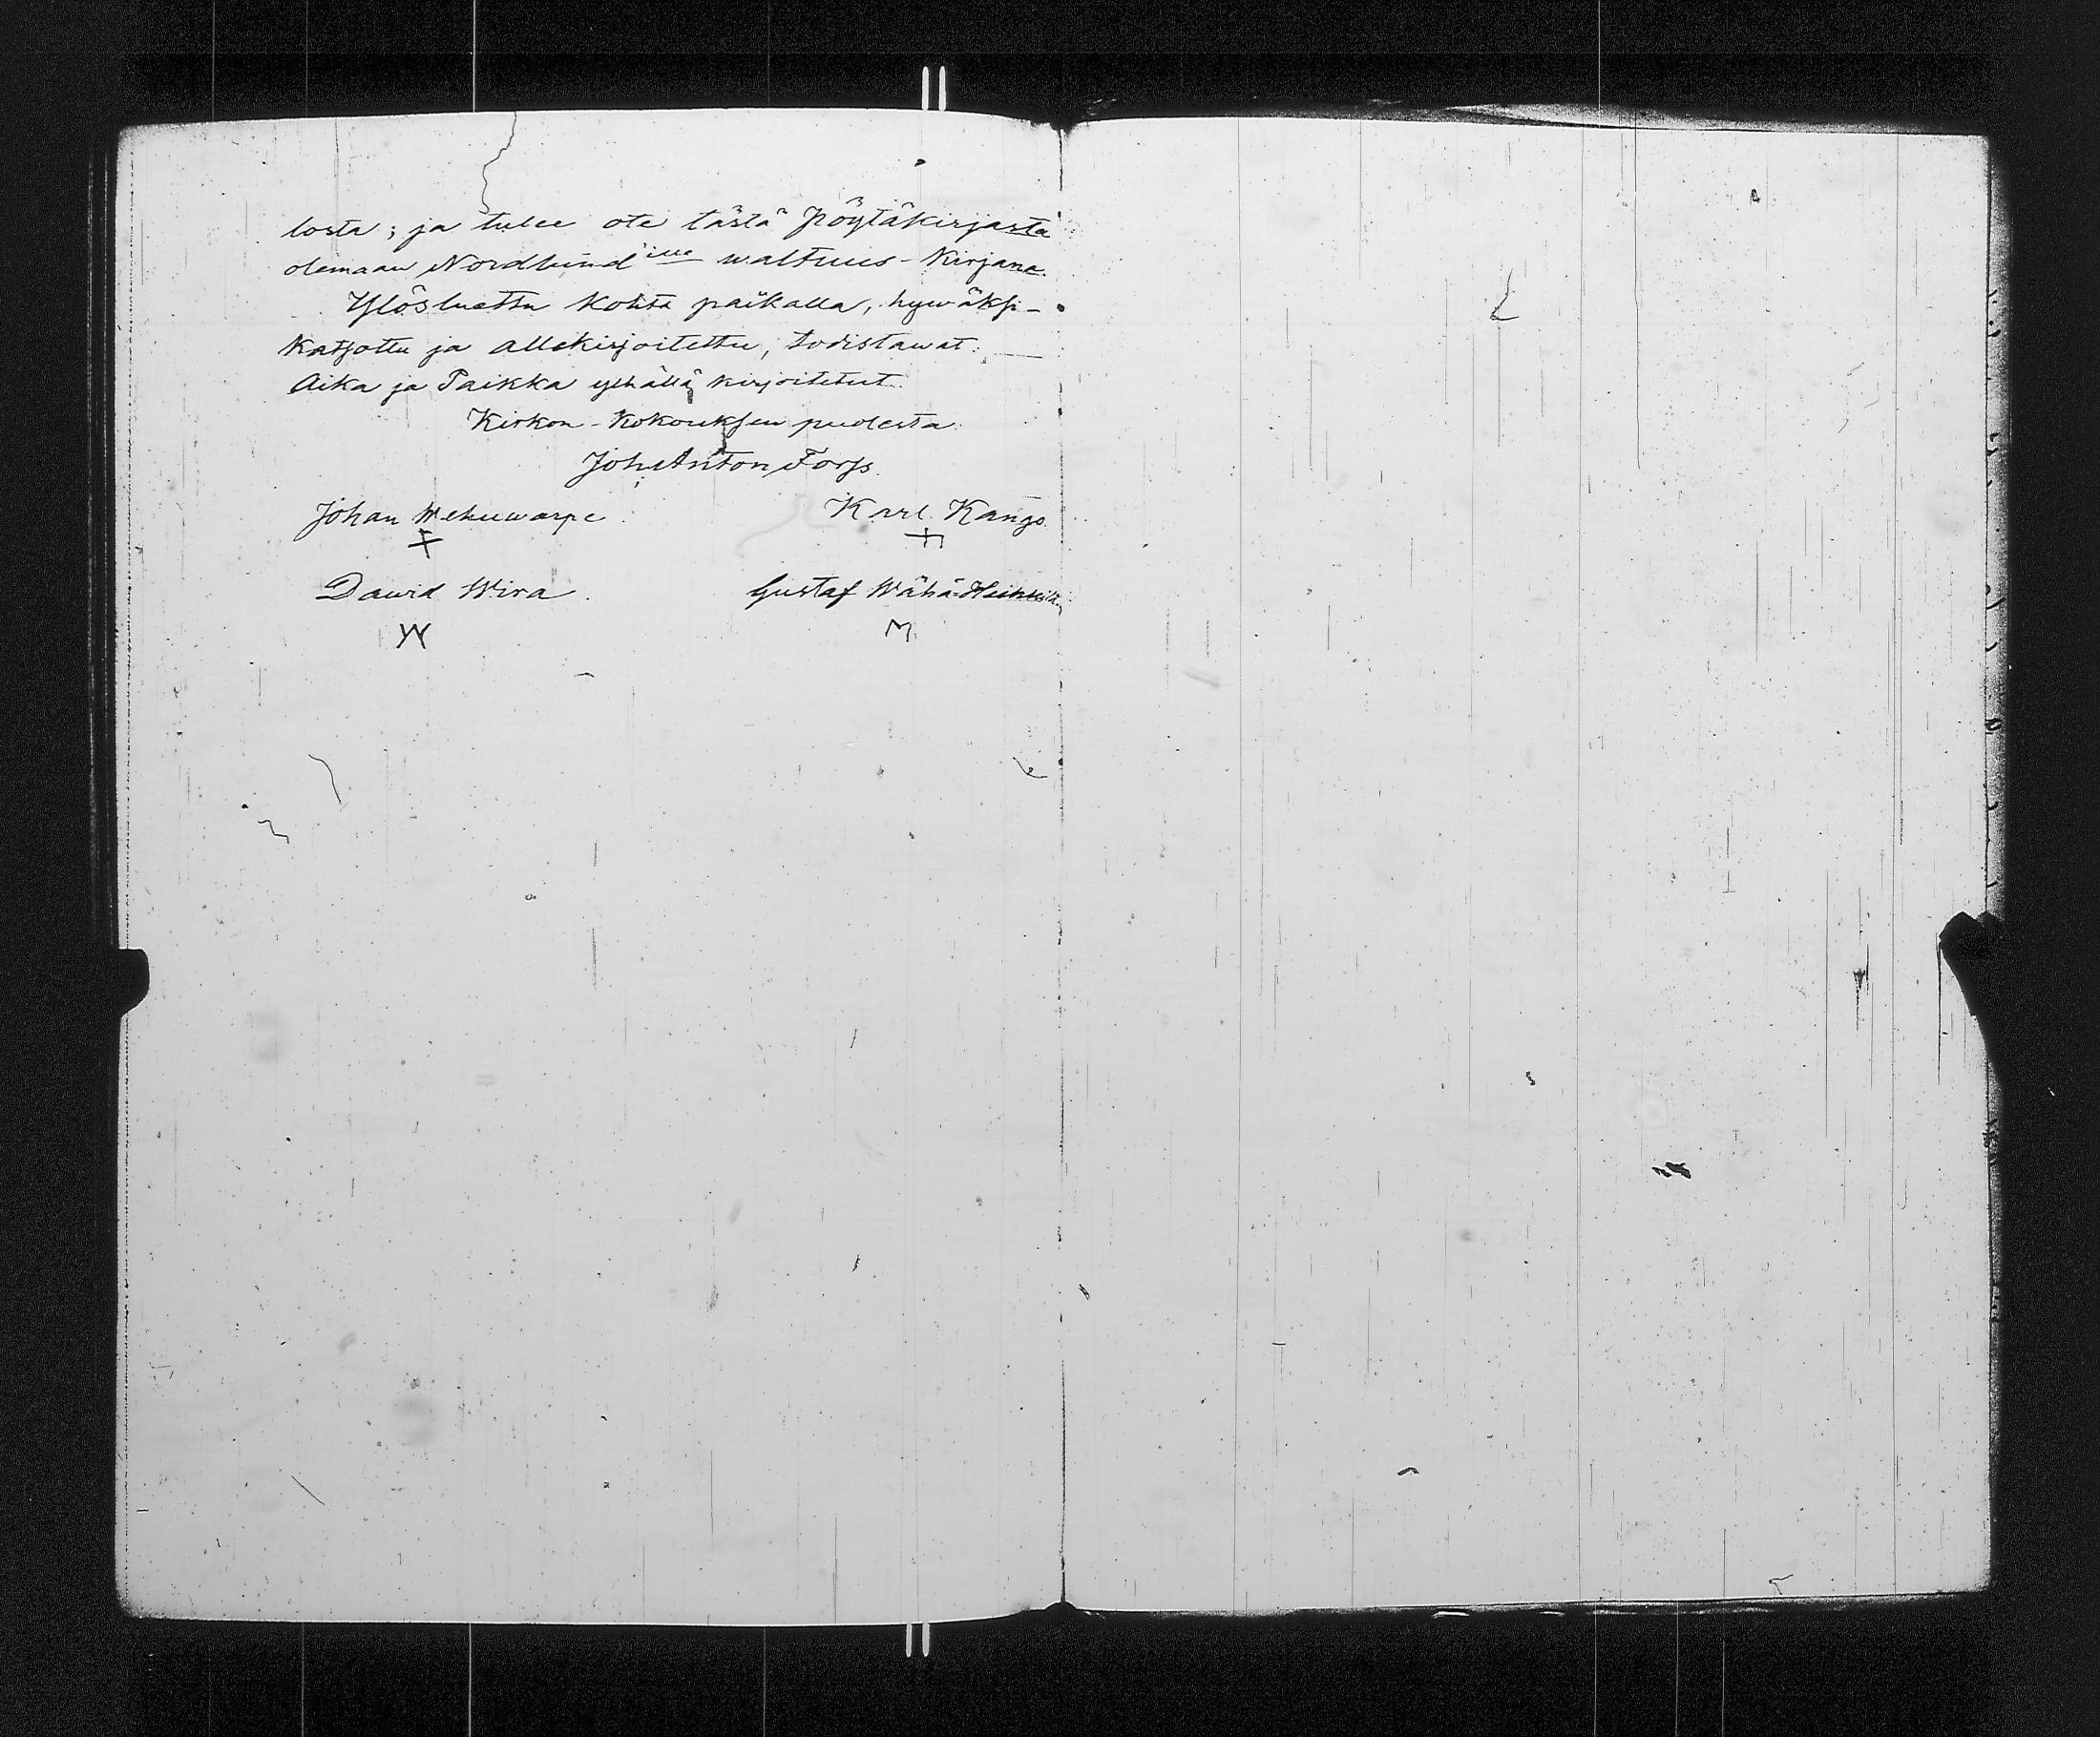 losta; ja tulee ote tästä Pöytäkirjasta
olemaan Nordlund'ille waltuus-Kirjana.
Ylösluettu kohta paikalla, hywäksi-
katsottu ja allekirjoitettu, todistawat:
Aika ja Paikka ylhällä kirjoitetut.
Kirkon-Kokouksen puolesta:
Joh. Anton Forss.
Johan Wehuwarpe. Karl Kango.
Dawid Wira. Gustaf Wähä-Heikkilä.
W M